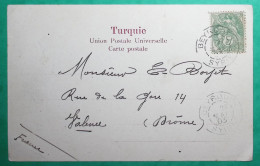 Turquie
Union Postale Universelle
Carte postale
Monsieur E. Boyet
Rue de la Gare 14
Valence
(Drôme)
France